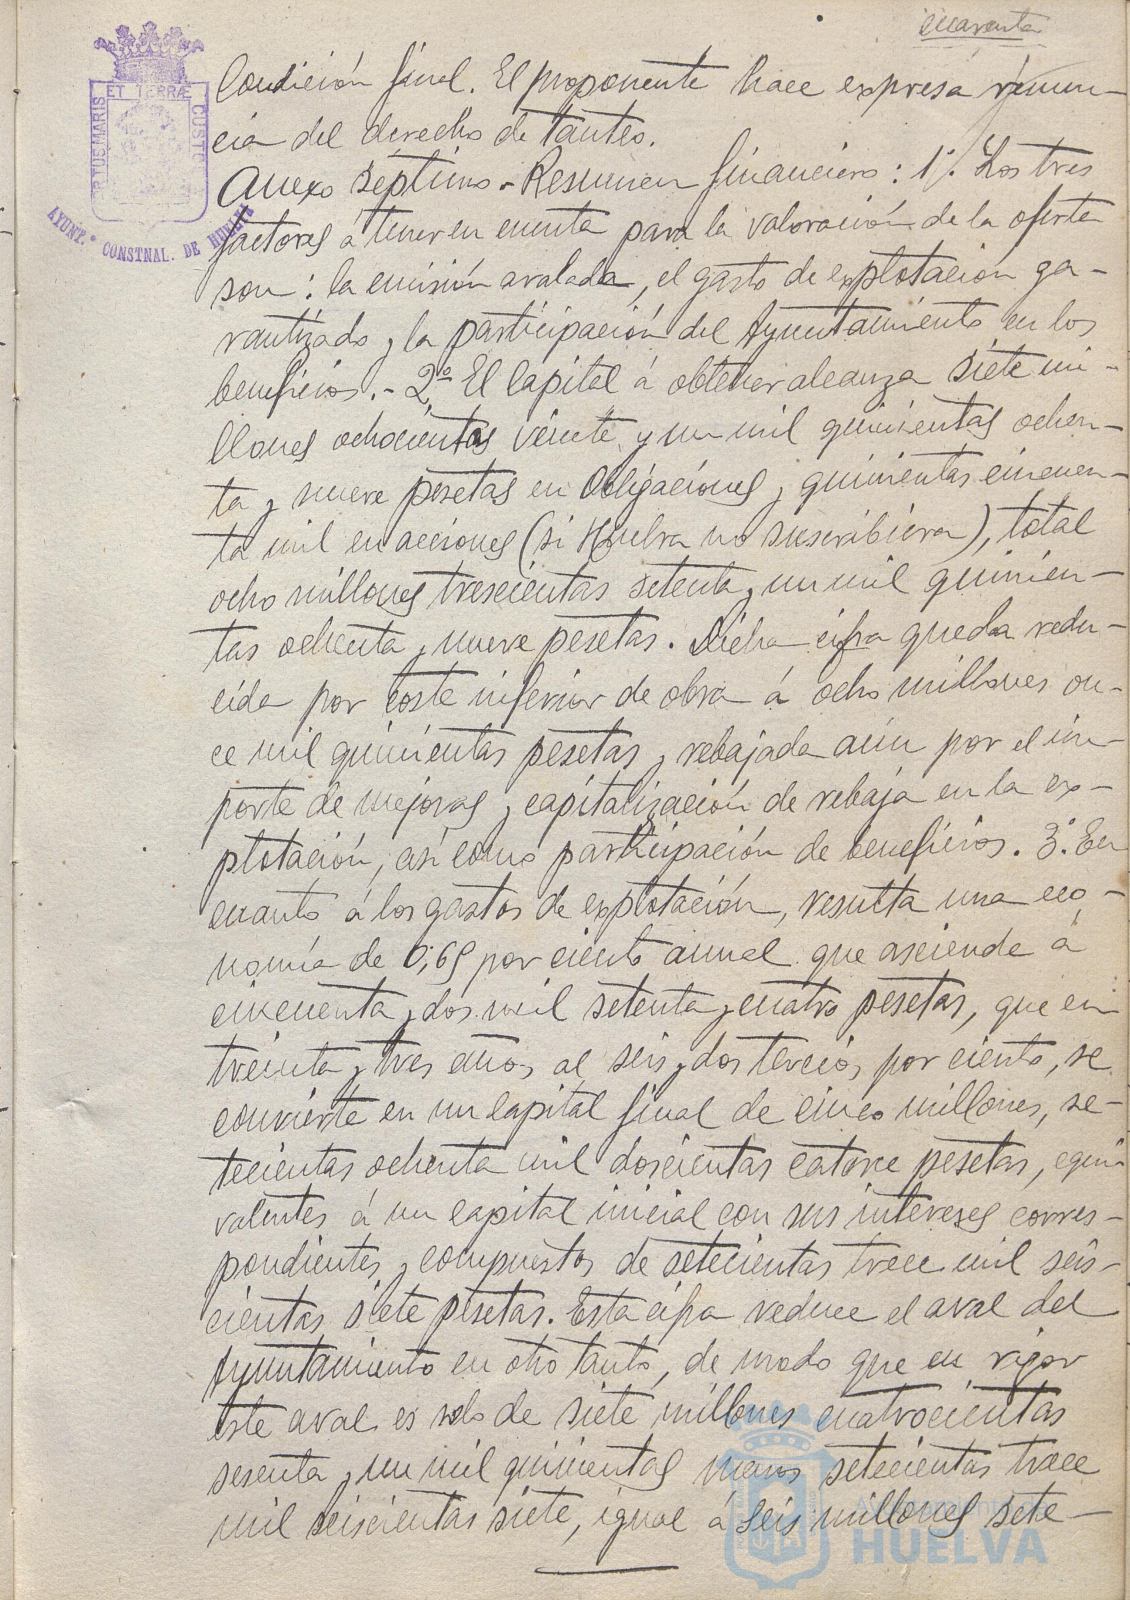 cuarenta
PORTUS MARIS ET TERRÆ CUSTO
AYUNT.º CONSTNAL. DE HUELVA
Condición final. El proponente hace expresa renun-
cia del derecho de tanteo.
Anexo séptimo.- Resumen financiero: 1º. Los tres
factores á tener en cuenta para la valoración de la oferta
son: la emisión avalada, el gasto de explotación ga-
rantizado y la participación del Ayuntamiento en los
beneficios.- 2º El capital á obtener alcanza siete mi-
llones ochocientas veinte y un mil quinientas ochen-
ta y nueve pesetas en Obligaciones y quinientas cincuen-
ta mil en acciones (si Huelva no suscribiera), total
ocho millones trescientas setenta y un mil quinien-
tas ochenta y nueve pesetas. Dicha cifra queda redu-
cida por coste inferior de obra á ocho millones on-
ce mil quinientas pesetas y rebajada aún por el im-
porte de mejoras y capitalización de rebaja en la ex-
plotación, así como participación de beneficios. 3º. En
cuanto á los gastos de explotación, resulta una eco-
nomía de 0,69 por ciento anual que asciende á
cincuenta y dos mil setenta y cuatro pesetas, que en
treinta y tres años al seis y dos tercios por ciento, se
convierte en un capital final de cinco millones, se-
tecientas ochenta mil doscientas catorce pesetas, equi-
valentes á un capital inicial con sus intereses corres-
pondientes y compuestos de setecientas trece mil seis-
cientas siete pesetas. Esta cifra reduce el aval del
Ayuntamiento en otro tanto, de modo que en rigor
este aval es solo de siete millones cuatrocientas
sesenta y un mil quinientas menos setecientas trece
mil seiscientas siete, igual á seis millones sete-
Ayuntamiento de
HUELVA